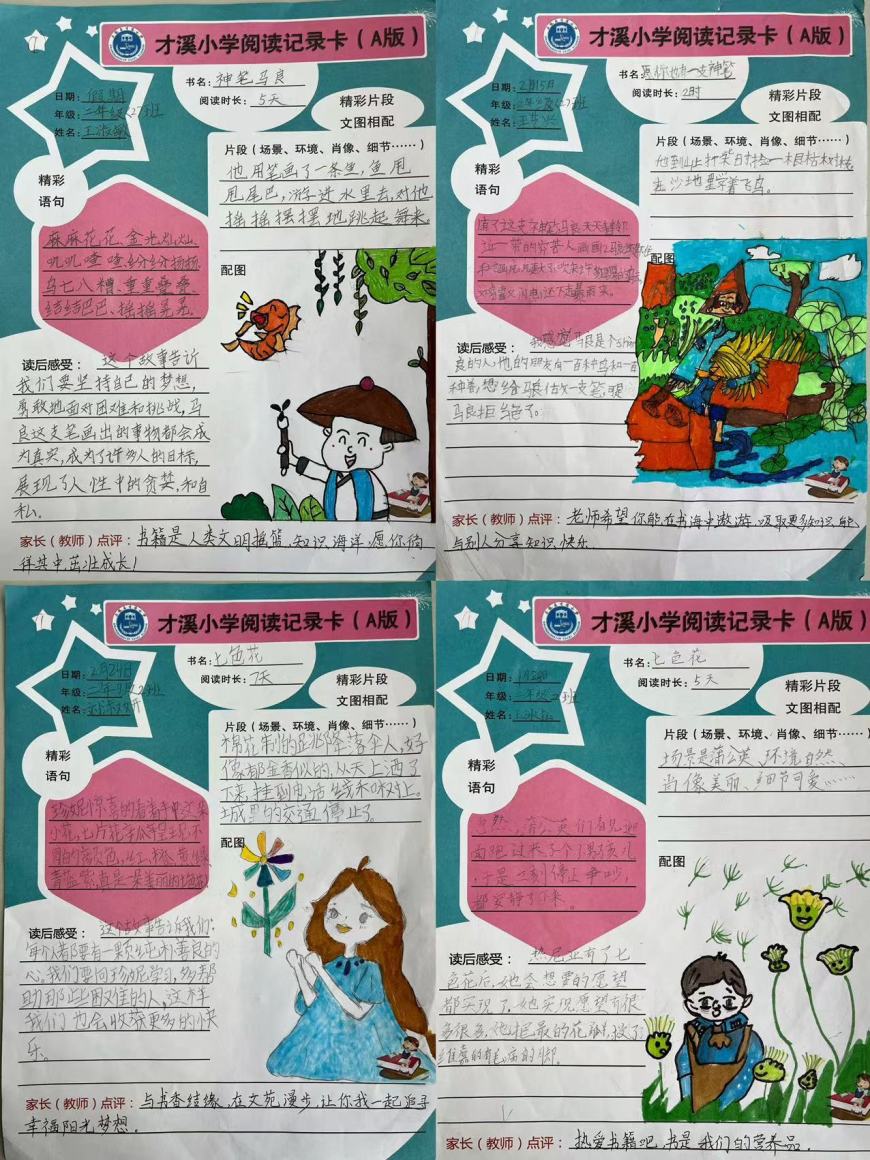 才溪小学阅读记录卡（A版）
日期：假期
年级：二年级(2)班
姓名：王淑敏
书名：神笔马良
阅读时长：5天
精彩片段
文图相配
精彩
语句
麻麻花花、金光灿灿、
叽叽喳喳、纷纷扬扬、
乌七八糟、重重叠叠、
结结巴巴、摇摇晃晃
片段（场景、环境、肖像、细节……）
他用笔画了一条鱼，鱼甩
甩尾巴，游进水里去，对他
摇摇摆摆地跳起舞来
配图
读后感受：这个故事告诉
我们要坚持自己的梦想，
勇敢地面对困难和挑战，马
良这支笔画出的事物都会成
为真实，成为了许多人的目标，
展现了人性中的贪婪，和自
私。
家长（教师）点评：书籍是人类文明摇篮，知识海洋，愿你徜
徉其中，茁壮成长！
才溪小学阅读记录卡（A版）
日期：2月15日
年级：2年级(2)班
姓名：
书名：愿你也有一支神笔
阅读时长：2时
精彩片段
文图相配
精彩
语句
片段（场景、环境、肖像、细节……）
他到山上打柴时捡一根枯树枝
在沙地里学着飞鸟。
配图
读后感受：我感觉马良是个
良的人，他的朋友有一百种鸟和一百
种兽，想给马良
马良拒绝了。
家长（教师）点评：老师希望你能在书海中遨游，吸取更多知识，能
与别人分享知识，快乐
才溪小学阅读记录卡（A版）
日期：2月24日
年级：二年级(2)班
姓名：
书名：七色花
阅读时长：7天
精彩片段
文图相配
精彩
语句
珍妮惊喜的看着手中这朵
小花，七片花
青蓝紫，真是一朵美丽的七色花
片段（场景、环境、肖像、细节……）
棉花制的跳降落伞人，好
像都金香似的，从天上洒了
下来，挂到电话线和树上。
城里的交通停止了。
配图
读后感受：这个故事告诉我们：
每个人都要有一颗纯朴善良的
心。我们要向珍妮学习，多帮
助那些困难的人，这样
我们也会收获更多的快
乐。
家长（教师）点评：与书香结缘，在文苑漫步，让你我一起追寻
幸福阳光梦想。
才溪小学阅读记录卡（A版）
日期：
年级：二年级(2)班
姓名：
书名：七色花
阅读时长：5天
精彩片段
文图相配
精彩
语句
，蒲公英们看见
面跑过来了个小男孩儿
，于是立刻停止争吵，
都安静了下来。
片段（场景、环境、肖像、细节……）
场景是蒲公英、环境自然、
肖像美丽、细节可爱……
配图
读后感受：热尼亚有了七
色花后，她会想要的愿望
都实现了，她实现愿望有很
多很多，
家长（教师）点评：热爱书籍吧，书是我们的营养品。